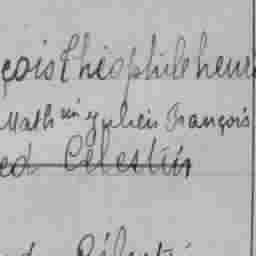 çois Théophile henri
Math in Julien François
ed Célestin
ed Célesti